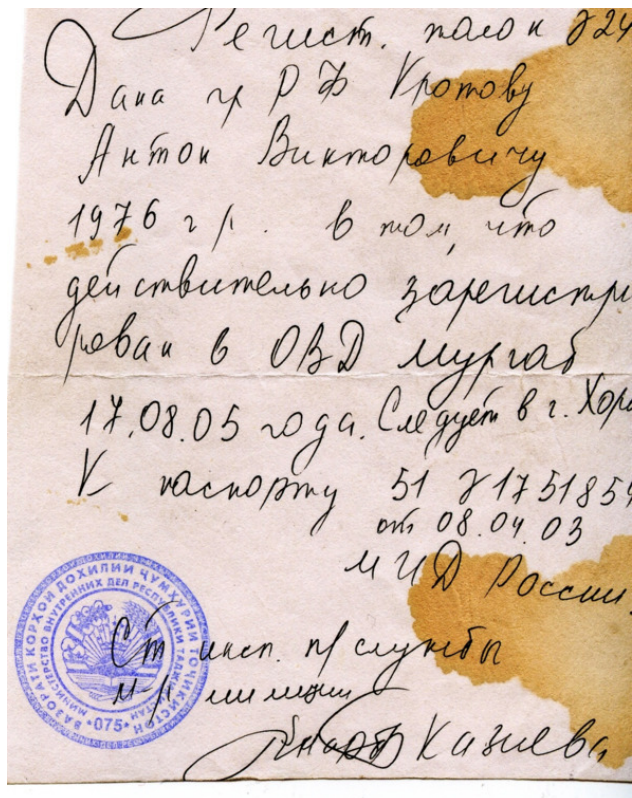 Регист. талон №24
Дана гр РФ Кротову
Антон Викторовичу
1976 г/р. в том, что
действительно зарегистри
рован в ОВД Мургаб
17.08.05 года. Следует в г. Хоро
К паспорту 51 №1751854
от 08.04.03
МИД России.
Ст инсп. п/службы
м-р милиции
Казиева
ВАЗОРАТИ КОРҲОИ ДОХИЛИИ ҶУМҲУРИИ ТОҶИКИСТОН
МИНИСТЕРСТВО ВНУТРЕННИХ ДЕЛ РЕСПУБЛИКИ ТАДЖИКИСТАН
•075•